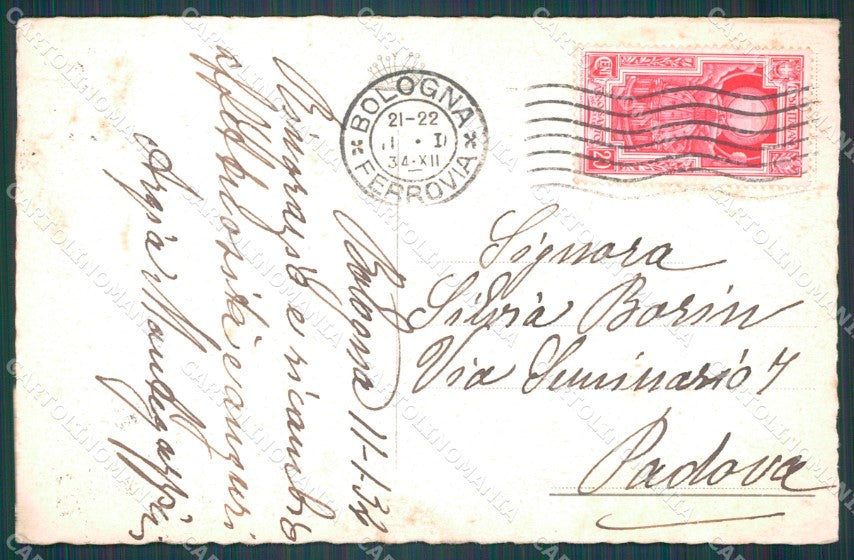 BOLOGNA
21-22
11 · I
34·XII
FERROVIA
20
Bologna 11-1-34
Ringrazio e ricambio
affettuosi auguri
Argia
Signora
Silvia Borin
Via Seminario 7
Padova
CARTOLINOMANIA